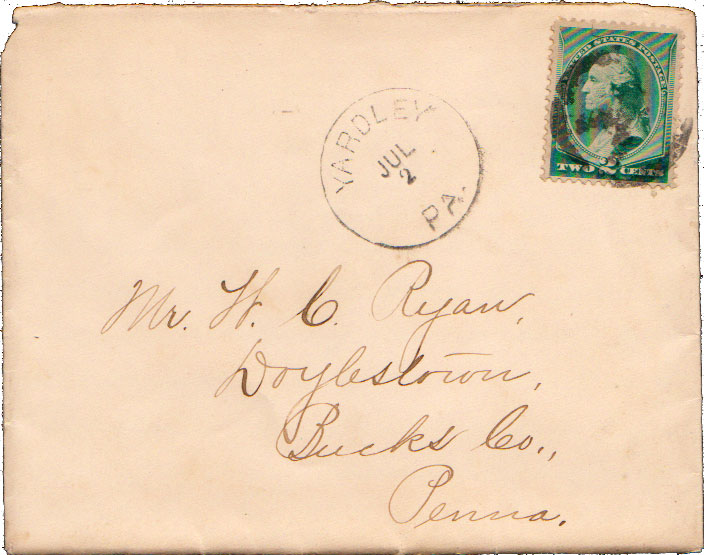 UNITED STATES POSTAGE
TWO 2 CENTS
YARDLEY
JUL
2
PA.
Mr. W. C. Ryan,
Doylestown,
Bucks Co.,
Penna.